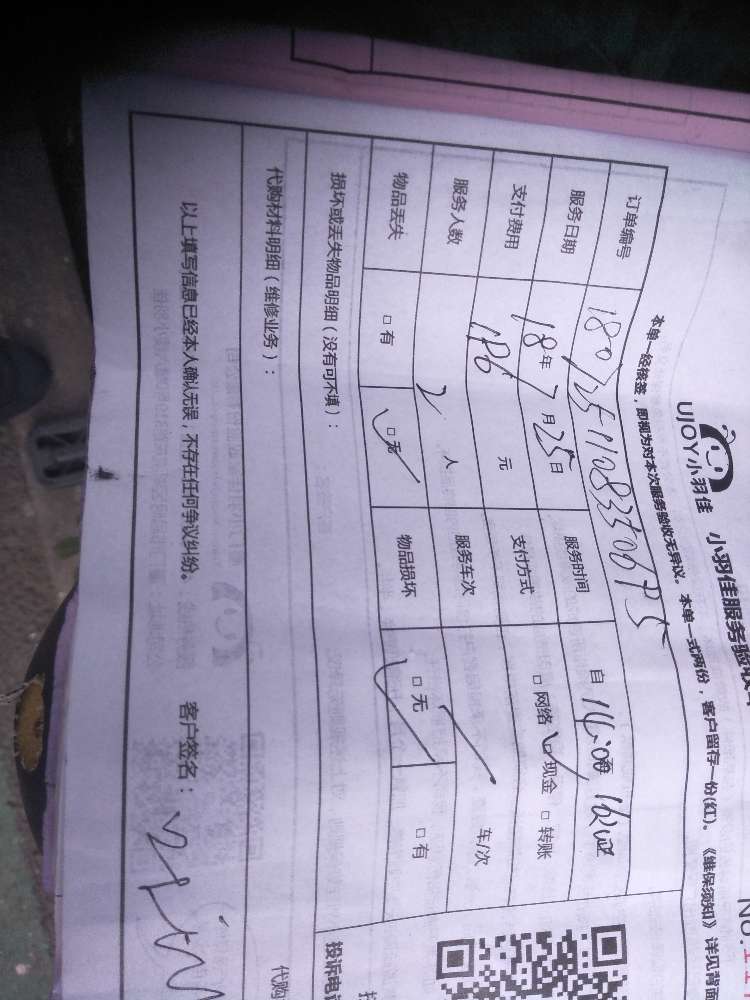 UJOY小羽佳 小羽佳服务验收
No.
本单一经核签，即视为对本次服务验收无异议。本单一式两份，客户留存一份(红)。《维保须知》详见背面
订单编号 18072511083506P5
服务日期 18年7月25日 服务时间 自 14:00
支付费用 元 支付方式 □网络 □现金 □转账
服务人数 2人 服务车次 车/次
物品丢失 □有 □无 物品损坏 □无 □有
损坏或丢失物品明细（没有可不填）：
投诉电
代购材料明细（维修业务）：
代购
以上填写信息已经本人确认无误，不存在任何争议纠纷。 客户签名：